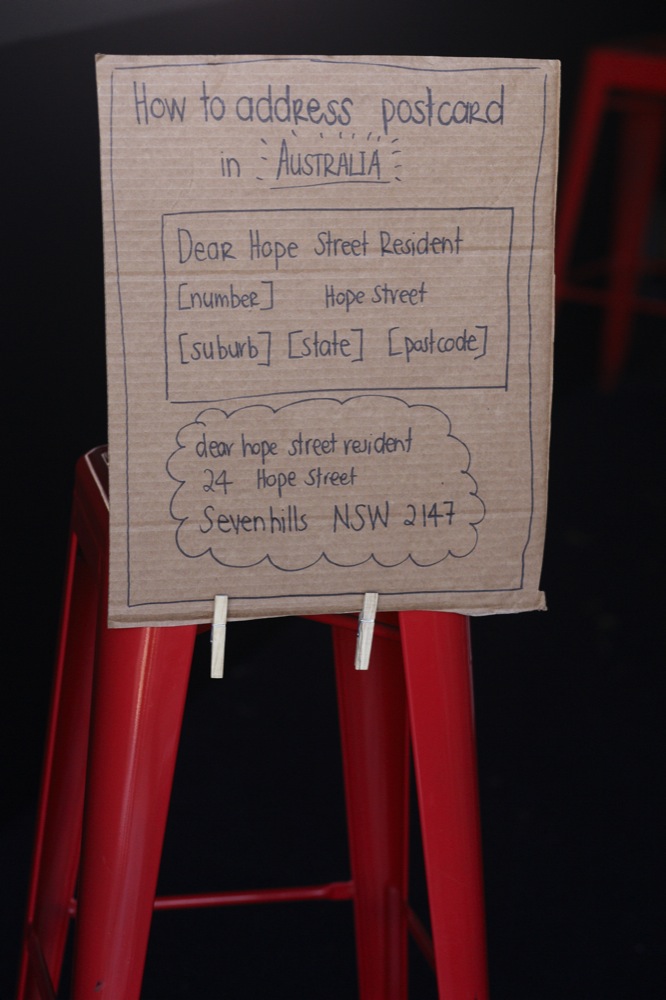 How to address postcard
in AUSTRALIA
Dear Hope Street Resident
[number] Hope Street
[suburb] [state] [postcode]
dear hope street resident
24 Hope Street
Sevenhills NSW 2147